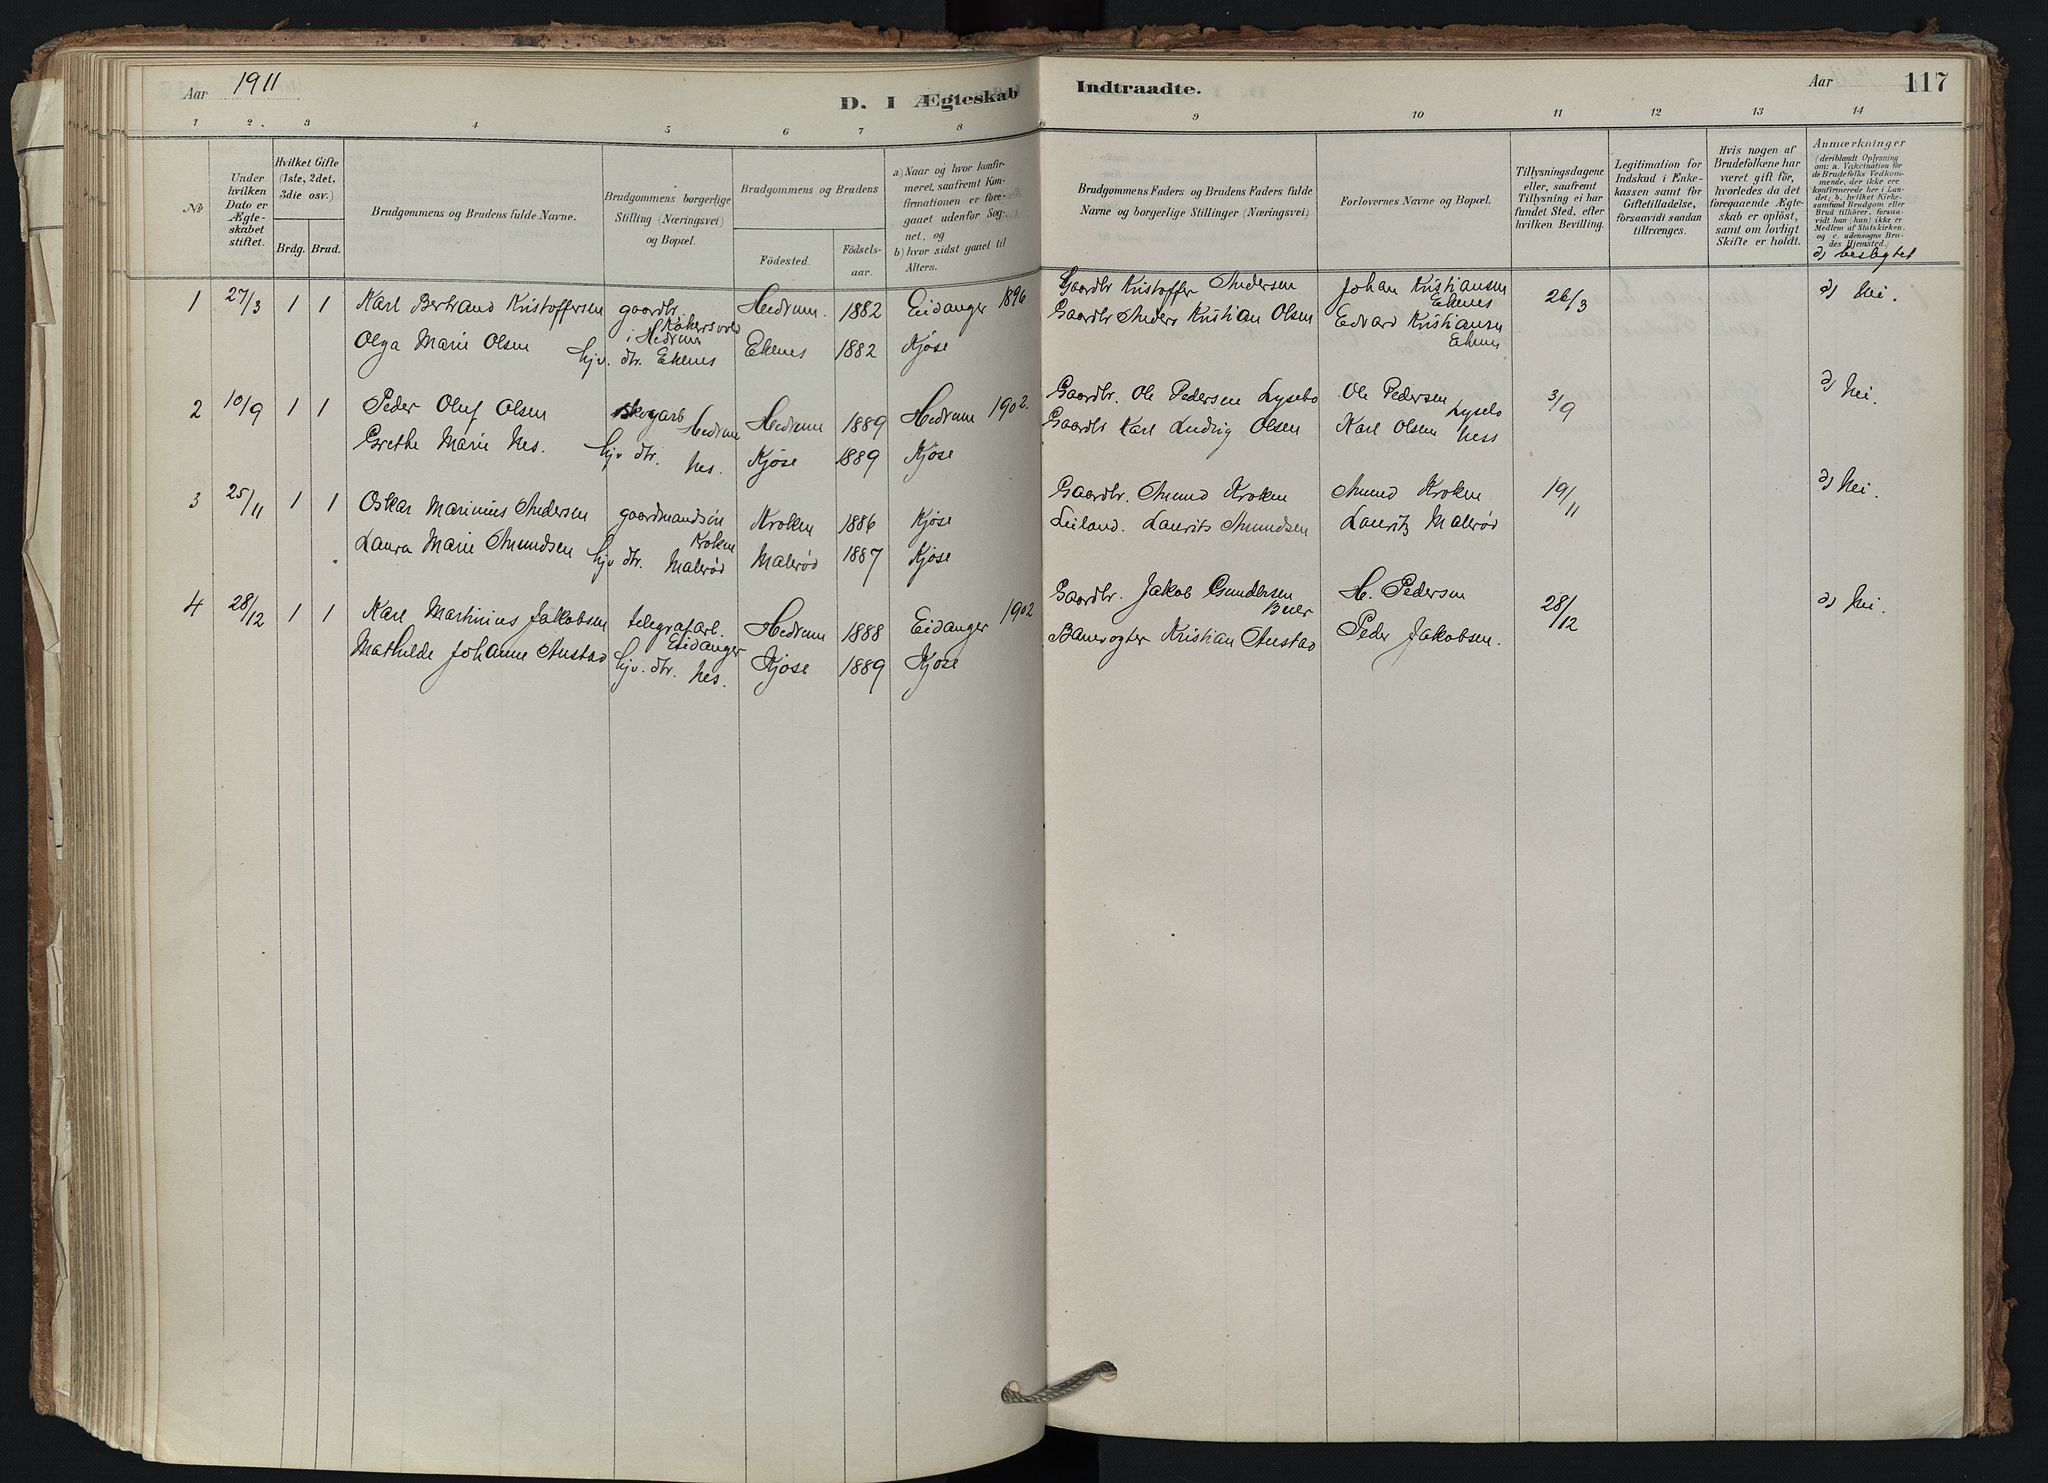 Aar 1911
D. I Ægteskab Indtraadte.
Aar 117
1 2. 3 4 5 6 7 8 9 10 11 12 13 14
No
Under hvilken Dato er Ægteskabet stiftet.
Hvilket Gifte (1ste, 2det, 3die osv.)
Brdg. Brud.
Brudgommens og Brudens fulde Navne.
Brudgommens borgerlige Stilling (Næringsvei) og Bopæl.
Brudgommens og Brudens
Födested. Födsels-aar.
a) Naar og hvor konfirmeret, saafremt Konfirmationen er foregaaet udenfor Sognet, og
b) hvor sidst gaaet til Alters.
Brudgommens Faders og Brudens Faders fulde Navne og borgerlige Stillinger (Næringsvei)
Forlovernes Navne og Bopæl.
Tillysningsdagene eller, saafremt Tillysning ei har fundet Sted, efter hvilken Bevilling.
Legitimation for Indskud i Enkekassen samt for Giftetilladelse, forsaavidt saadan tiltrænges.
Hvis nogen af Brudefolkene har været gift før, hvorledes da det foregaaende Ægteskab er oplöst, samt om lovligt Skifte er holdt.
Anmærkninger
(deriblandt Oplysning om: a. Vakcination for de Brudefolks Vedkommende, der ikke ere konfirmerede her i Landet; b. hvilket Kirkesamfund Brudgom eller Brud tilhörer, forsaavidt han (hun) ikke er Medlem af Statskirken, og c. udensogns Brudes Hjemsted.)
d) beslegtet
1 27/3 1 1 Karl Bertrand Kristoffersen gaardbr. i Hedrum Hedrum. 1882 Eidanger 1896 Gaardbr Kristoffer Andersen Johan Kristiansen Ekenes 26/3 d) Nei.
Olga Marie Olsen hjv. dtr. Ekenes Ekenes 1882 Kjose Gaardbr Anders Kristian Olsen Edvard Kristiansen Ekenes
2 10/9 1 1 Peder Oluf Olsen skogarb Hedrum Hedrum 1889 Hedrum 1902. Gaardbr. Ole Pedersen Lysebo Ole Pedersen Lysebo 3/9 d) Nei.
Grethe Marie Nes. hjv dtr. Nes. Kjøse 1889 Kjøse Gaardbr Karl Ludvig Olsen Karl Olsen Ness
3 25/11 1 1 Oskar Marinius Andersen gaardmandsøn Kroken Kroken 1886 Kjøse Gaardbr. Amund Kroken Amund Kroken 19/11 d) Nei.
Laura Marie Amundsen hjv dtr. Malerød Malerød 1887 Kjøse Leiland. Laurits Amundsen Lauritz Malerød
4 28/12 1 1 Karl Martinius Jakobsen telegrafarb. Eidanger Hedrum 1888 Eidanger 1902 Gaardbr. Jakob Gundersen H. Pedersen 28/12 d) Nei.
Mathilde Johanne Austad hjv. dtr. Nes. Kjøse 1889 Kjøse Banevogter Kristian Austad Peder Jakobsen.